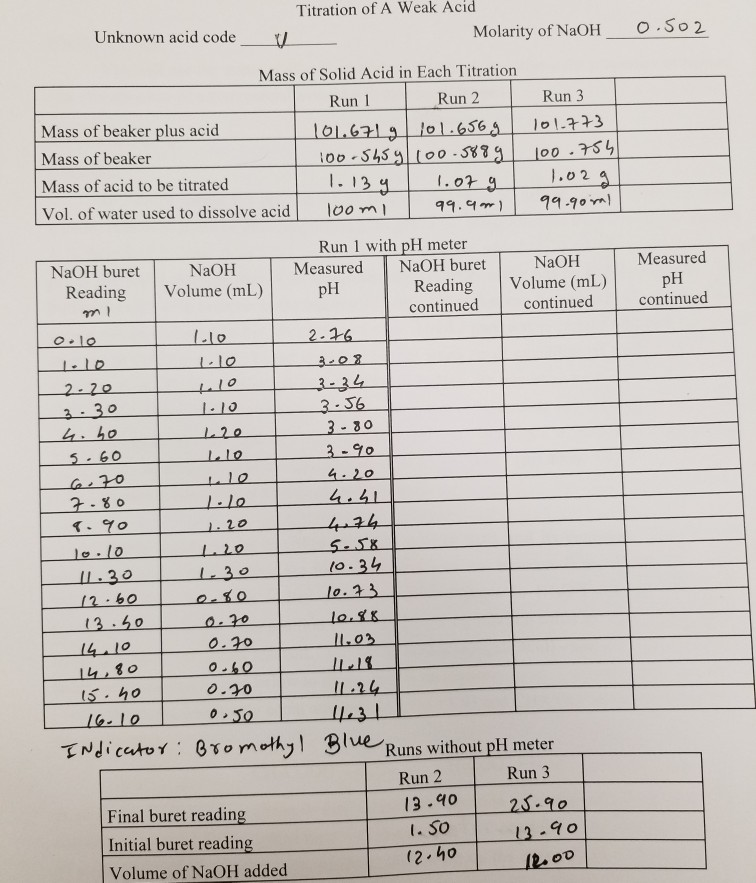 Titration of A Weak Acid
Unknown acid code V Molarity of NaOH 0.502
Mass of Solid Acid in Each Titration
Run 1 Run 2 Run 3
Mass of beaker plus acid 101.671 g 101.656 g 101.773
Mass of beaker 100.545 g 100.588 g 100.754
Mass of acid to be titrated 1.13 g 1.07 g 1.02 g
Vol. of water used to dissolve acid 100 ml 99.9 ml 99.90 ml
Run 1 with pH meter
NaOH buret NaOH Measured NaOH buret NaOH Measured
Reading Volume (mL) pH Reading Volume (mL) pH
ml continued continued continued
0.10 1.10 2.76
1.10 1.10 3.08
2.20 1.10 3.34
3.30 1.10 3.56
4.40 1.20 3.80
5.60 1.10 3.90
6.70 1.10 4.20
7.80 1.10 4.41
8.90 1.20 4.74
10.10 1.20 5.58
11.30 1.30 10.34
12.60 0.80 10.73
13.40 0.70 10.88
14.10 0.70 11.03
14.80 0.60 11.18
15.40 0.70 11.24
16.10 0.50 11.31
INdicator: Bromothyl Blue
Runs without pH meter
Run 2 Run 3
Final buret reading 13.90 25.90
Initial buret reading 1.50 13.90
Volume of NaOH added 12.40 12.00